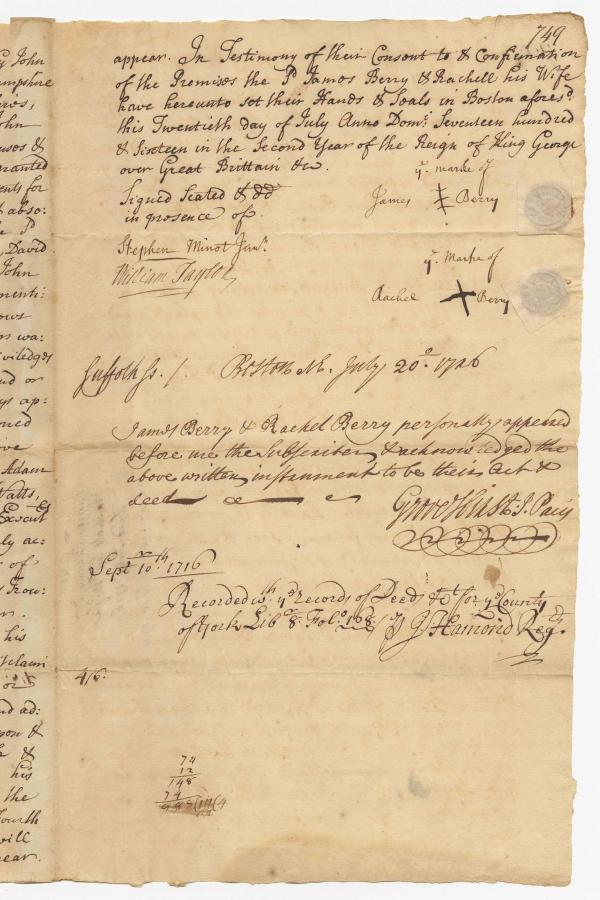 y John
ampshire
John
uses &
ranted
ents for
t abso:
e Sd
, David
John
menti:
ows
rs wa:
iviledges
nd or
ys ap:
oned
ove
Adam
Watts,
Execut
ly ac:
of
s Frow:
er.
his
itclaim
or
nd ad:
pon &
e &
his
the
fourth
will
pear.
749
appear. In Testimony of their Consent to & Confirmation
of the Premises the Sd James Berry & Rachell his Wife
have hereunto set their Hands & Seals in Boston aforesd
this Twentieth day of July Anno Domi Seventeen hundred
& Sixteen in the Second Year of the Reign of King George
over Great Brittain &c.
ye marke of
Signed Sealed & dd
James Berry
in presence of.
Stephen Minot Junr.
William Taylor
ye Marke of
Rachel Berry
Suffolk Ss. /. Boston NE. July 20o. 1716
James Berry & Rachel Berry personally appeared
before me the Subscriber & acknowledged the
above written instrument to be their Act &
deed
Grove Hirst J. Pacis
Septr. 10th. 1716
Recorded wth. ye Records of Deeds &c for ye County
of York Libo 8. Folo. 168. P J Hamond Regr.
4/6.
74
12
148
74
888